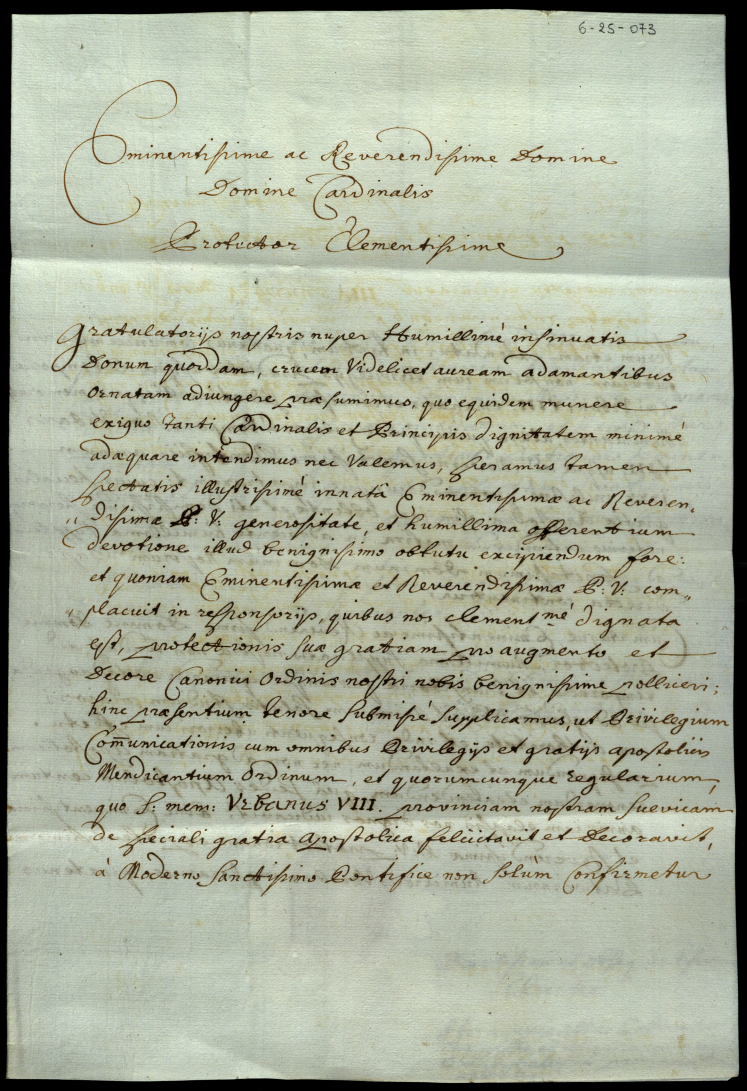 6-25-073
Eminentissime ac Reverendissime Domine
Domine Cardinalis
Protector Clementissime
Gratulatorijs nostris nuper Humillimè insinuatis
Donum quoddam, crucem Videlicet auream adamantibus
ornatam adiungere præsumimus, quo equidem munere
exiguo tanti Cardinalis et Principis dignitatem minimè
adæquare intendimus nec Valemus, speramus tamen
spectatis illustrissimè innatâ Eminentissimæ ac Reveren„
„dissimæ P: V: generositate, et humillima offerentium
devotione illud benignissimo obtutu excipiendum fore:
et quoniam Eminentissimæ et Reverendissimæ P: V: com„
„placuit in responsorijs, quibus nos clementmè dignata
est, protectionis suæ gratiam pro augmento et
Decore Canonici ordinis nostri nobis benignissime polliceri;
hinc præsentium tenore submissè supplicamus, ut Privilegium
Com̄unicationis cum omnibus Privilegijs et gratijs apostolicis
Mendicantium Ordinum, et quorumcunque regularium,
quo S: mem: Urbanus VIII. provinciam nostram Suevicam
de speciali gratia Apostolica felicitavit et Decoravit,
à Moderno Sanctissimo Pontifice non solùm Confirmetur